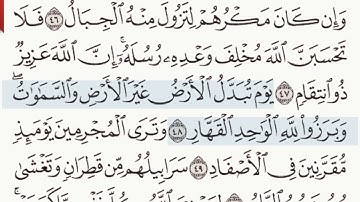 وَإِن كَانَ مَكْرُهُمْ لِتَزُولَ مِنْهُ ٱلْجِبَالُ ٤٦ فَلَا
تَحْسَبَنَّ ٱللَّهَ مُخْلِفَ وَعْدِهِۦ رُسُلَهُۥٓ ۗ إِنَّ ٱللَّهَ عَزِيزٌ
ذُو ٱنتِقَامٍ ٤٧ يَوْمَ تُبَدَّلُ ٱلْأَرْضُ غَيْرَ ٱلْأَرْضِ وَٱلسَّمَٰوَٰتُ ۖ
وَبَرَزُوا۟ لِلَّهِ ٱلْوَٰحِدِ ٱلْقَهَّارِ ٤٨ وَتَرَى ٱلْمُجْرِمِينَ يَوْمَئِذٍ
مُّقَرَّنِينَ فِى ٱلْأَصْفَادِ ٤٩ سَرَابِيلُهُم مِّن قَطِرَانٍ وَتَغْشَىٰ